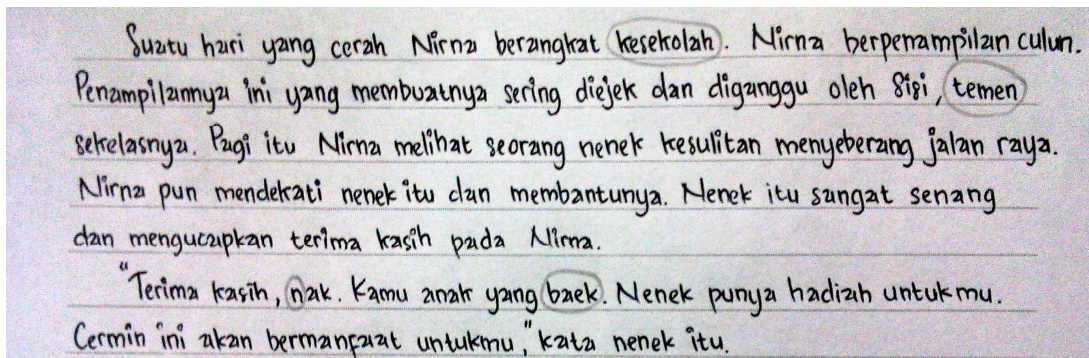 Suatu hari yang cerah Nirna berangkat kesekolah. Nirna berpenampilan culun.
Penampilannya ini yang membuatnya sering diejek dan diganggu oleh Sisi, temen
sekelasnya. Pagi itu Nirna melihat seorang nenek kesulitan menyeberang jalan raya.
Nirna pun mendekati nenek itu dan membantunya. Nenek itu sangat senang
dan mengucapkan terima kasih pada Nirna.
"Terima kasih, nak. Kamu anak yang baek. Nenek punya hadiah untukmu.
Cermin ini akan bermanfaat untukmu," kata nenek itu.